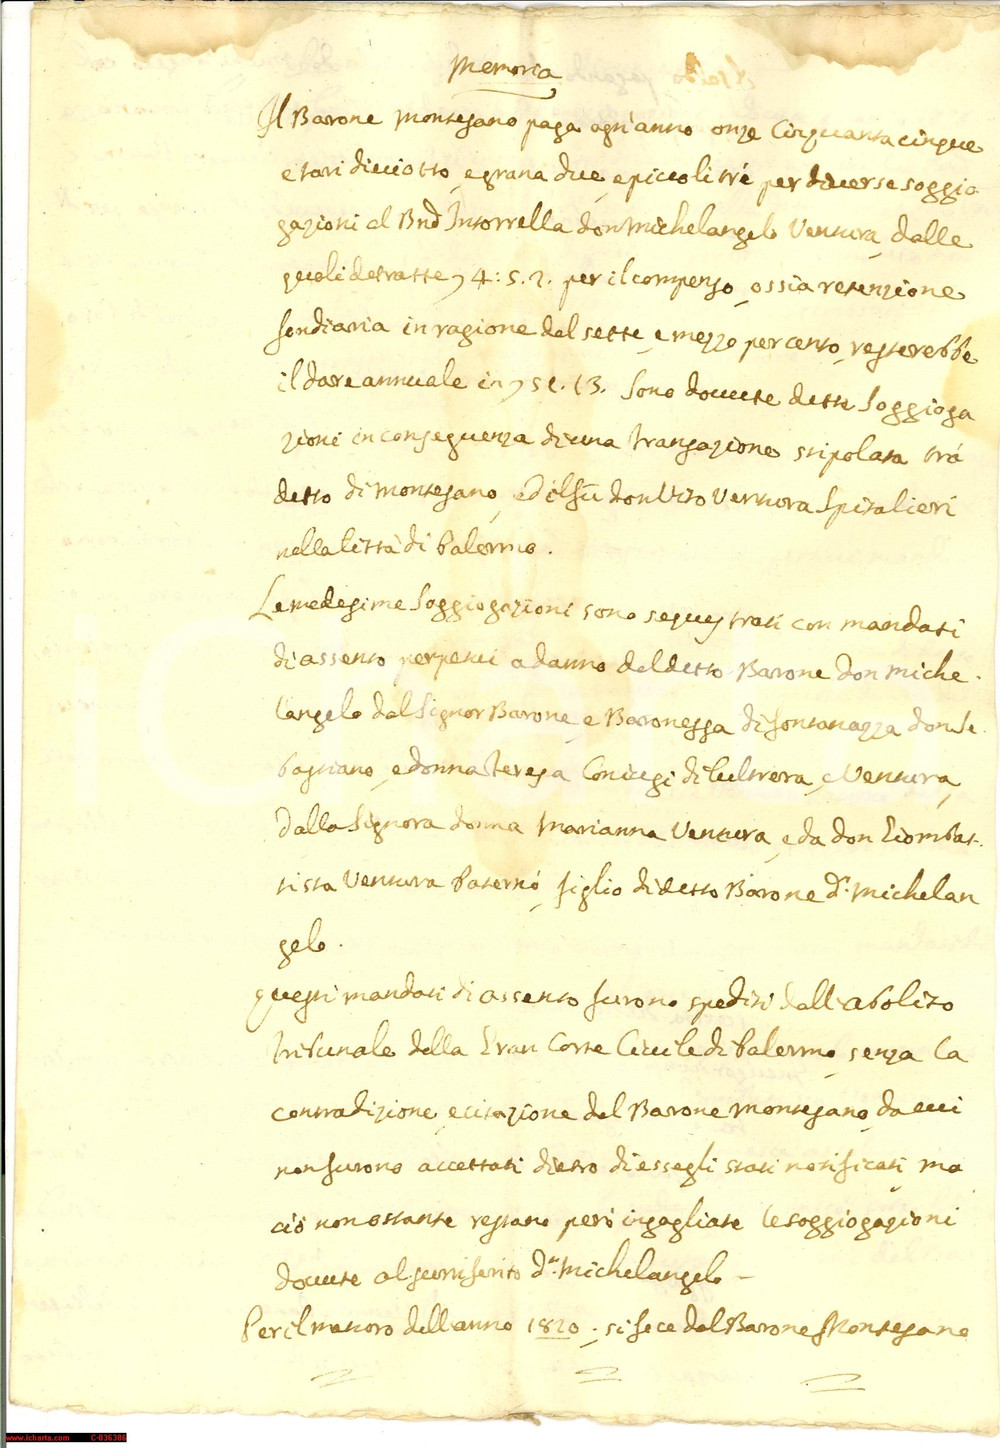 Memoria
Il Barone Montesano paga ogn'anno onze Cinquantacinque
e tarì dieciotto, e grana due, e piccoli trè per diverse soggio
gazioni al Bnē Intorrella don Michelangelo Ventura, dalle
quali detratte 4: 5. 2. per il compenso, ossia retenzione
fondiaria in ragione del sette, e mezzo per cento, resterebbe
il dare annuale in 51. 13. Sono dovute dette Soggioga
zioni in conseguenza di una transazione stipolata trà
detto di Montesano, ed il fù don Vito Ventura Spitalieri
nella Città di Palermo.
Le medesime Soggiogazioni sono sequestrati con mandati
di assento perpetui a danno del detto Barone Don Miche-
langelo dal Signor Barone, e Baronessa di fontanazza don Se-
bastiano, e donna Teresa Coniugi di Cultrera, e Ventura,
dalla Signora donna Marianna Ventura, e da don Giombat-
tista Ventura Paternò, figlio di detto Barone Dn. Michelan
gelo.
questi mandati di assento furono spediti dall'abolito
tribunale della Gran Corte Civile di Palermo, senza la
contradizione, e citazione del Barone Montesano, da cui
non furono accettati dietro di essegli stati notificati, ma
ciò non ostante restano però ingagliate le soggiogazioni
dovute al surriferito Dn. Michelangelo –
Per il maturo dell'anno 1820. si fece dal Barone Montesano
www.icharta.com C-036386